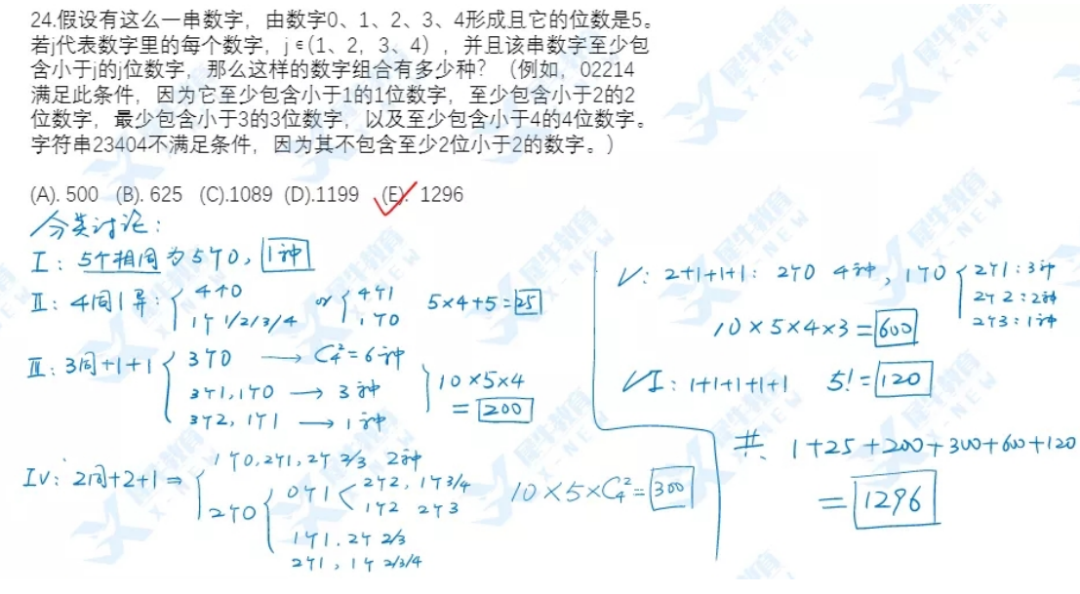 24.假设有这么一串数字，由数字0、1、2、3、4形成且它的位数是5。
若j代表数字里的每个数字，j∈(1、2，3、4），并且该串数字至少包
含小于j的j位数字，那么这样的数字组合有多少种？（例如，02214
满足此条件，因为它至少包含小于1的1位数字，至少包含小于2的2
位数字，最少包含小于3的3位数字，以及至少包含小于4的4位数字。
字符串23404不满足条件，因为其不包含至少2位小于2的数字。）
(A). 500 (B). 625 (C).1089 (D).1199 (E). 1296
分类讨论：
I：5个相同为5个0，1种
II：4同1异：4个0 or 4个1 5×4+5=25
1个1/2/3/4 1个0
III：3同+1+1 3个0 → C₄²=6种
3个1,1个0 → 3种 10×5×4
3个2，1个1 → 1种 =200
IV：2同+2+1 ⇒ 1个0,2个1,2个2/3 2种
2个0 0个1 2个2，1个3/4
1个2 2个3 10×5×C₄²=300
1个1.2个2/3
2个1，1个2/3/4
V：2+1+1+1：2个0 4种，1个0 2个1：3种
2个2：2种
2个3：1种
10×5×4×3=600
VI：1+1+1+1+1 5!=120
共 1+25+200+300+600+120
=1296
犀牛教育
X-NEW